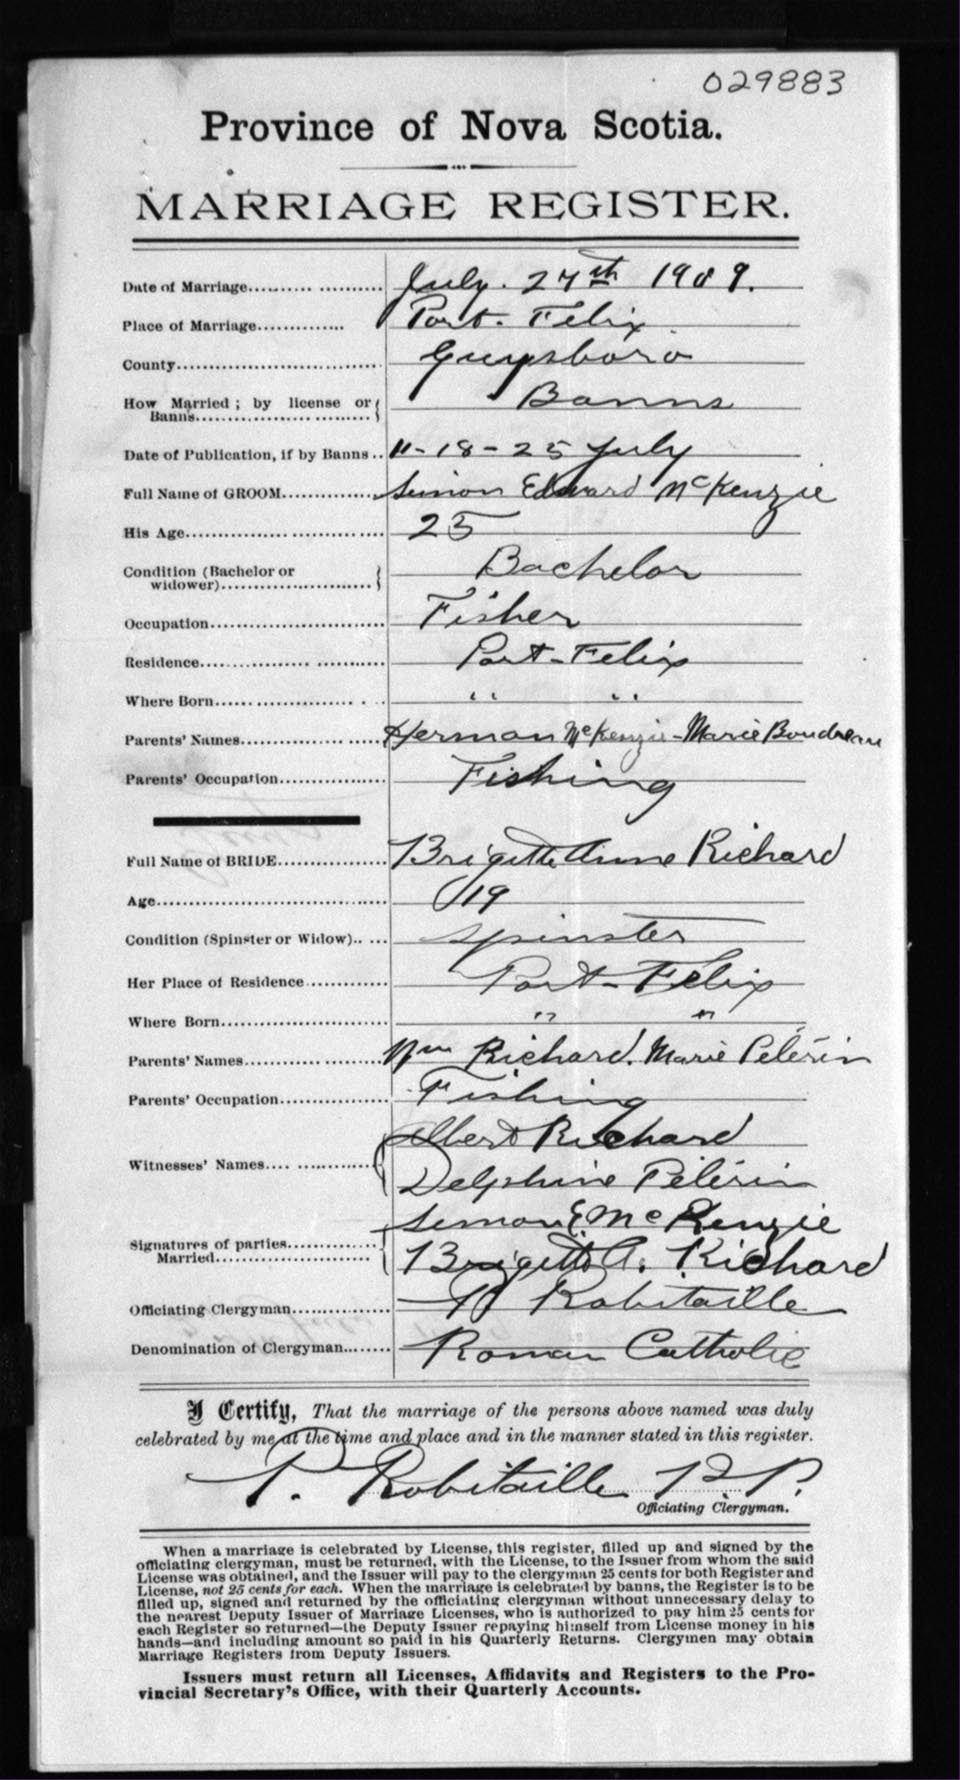 029883
Province of Nova Scotia.
MARRIAGE REGISTER.
Date of Marriage.................. July. 27th 1909.
Place of Marriage.............. Port. Felix.
County.................................. Guysboro
How Married ; by license or
Banns.......................... Banns
Date of Publication, if by Banns .. 11-18-25 July
Full Name of GROOM.............. Simon Edward McKenzie
His Age.................................. 25
Condition (Bachelor or
widower)........................ Bachelor
Occupation............................. Fisher
Residence.............................. Port-Felix
Where Born........................... " "
Parents' Names...................... Herman McKenzie-Marie Boudreau
Parents' Occupation................ Fishing
Full Name of BRIDE................ Brigitte Anne Richard
Age....................................... 19
Condition (Spinster or Widow).. ... Spinster
Her Place of Residence............ Port-Felix
Where Born........................... " "
Parents' Names...................... Wm Richard. Marie Pélerin
Parents' Occupation................ Fishing
Witnesses' Names.... ............. Albert Richard
Delphine Pélerin
Signatures of parties............... Simon E. McKenzie
Married......................... Brigitte A. Richard
Officiating Clergyman.............. P Robitaille
Denomination of Clergyman....... Roman Catholic
I Certify, That the marriage of the persons above named was duly
celebrated by me at the time and place and in the manner stated in this register.
P. Robitaille P.P.
Officiating Clergyman.
When a marriage is celebrated by License, this register, filled up and signed by the
officiating clergyman, must be returned, with the License, to the Issuer from whom the said
License was obtained, and the Issuer will pay to the clergyman 25 cents for both Register and
License, not 25 cents for each. When the marriage is celebrated by banns, the Register is to be
filled up, signed and returned by the officiating clergyman without unnecessary delay to
the nearest Deputy Issuer of Marriage Licenses, who is authorized to pay him 25 cents for
each Register so returned—the Deputy Issuer repaying himself from License money in his
hands—and including amount so paid in his Quarterly Returns. Clergymen may obtain
Marriage Registers from Deputy Issuers.
Issuers must return all Licenses, Affidavits and Registers to the Pro-
vincial Secretary's Office, with their Quarterly Accounts.